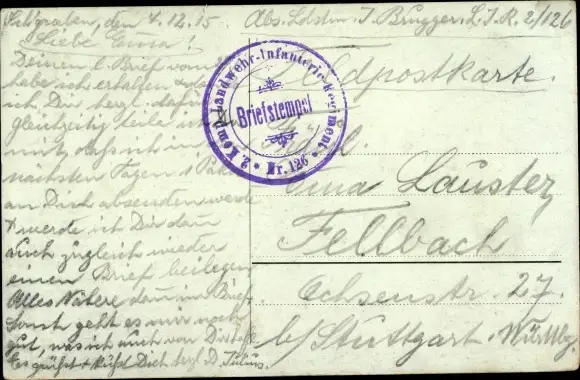 Schützengraben, den 4.12.15
Abs. Ldstm. J. Brugger, L.I.R. 2/126
Liebe Emma!
Deinen l. Brief vom
habe ich erhalten + danke
ich Dir herzl. dafür
gleichzeitig teile ich
mit, daß ich in
nächsten Tagen 1 Paket
an Dich absenden werde
+ werde ich Dir dann
auch zugleich wieder
einen Brief beilegen
Alles Nähere dann im Brief
Sonst geht es mir noch
gut, was ich auch von Dir hoffe
Es grüßt + küßt Dich herzl. D. Julius.
Feldpostkarte.
2. Komp. Landwehr-Infanterie-Regiment
Briefstempel
Nr. 126
Emma Lauster
Fellbach
Ochsenstr. 27.
b/Stuttgart Württbg.